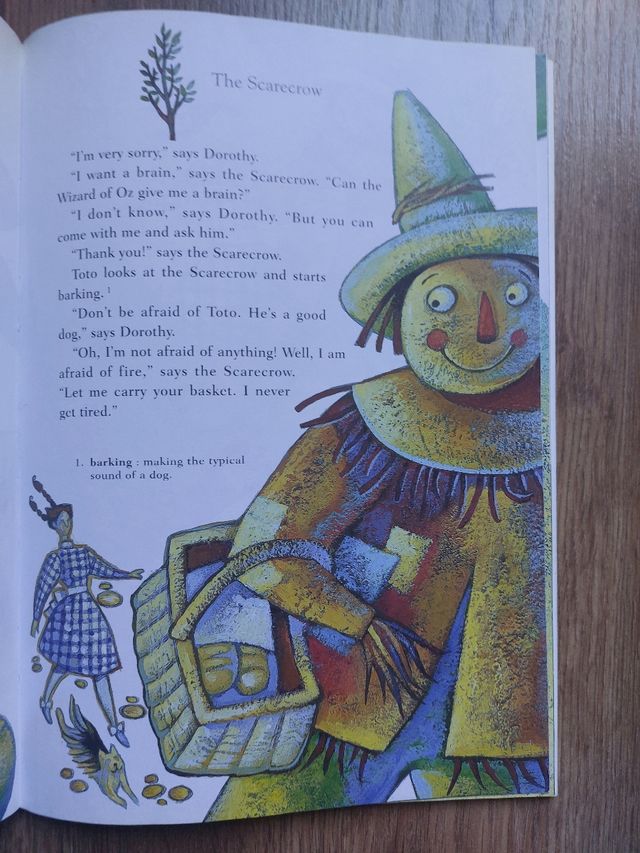 The Scarecrow
“I'm very sorry,” says Dorothy.
“I want a brain,” says the Scarecrow. “Can the
Wizard of Oz give me a brain?”
“I don't know,” says Dorothy. “But you can
come with me and ask him.”
“Thank you!” says the Scarecrow.
Toto looks at the Scarecrow and starts
barking. 1
“Don't be afraid of Toto. He's a good
dog,” says Dorothy.
“Oh, I'm not afraid of anything! Well, I am
afraid of fire,” says the Scarecrow.
“Let me carry your basket. I never
get tired.”
1. barking : making the typical
sound of a dog.